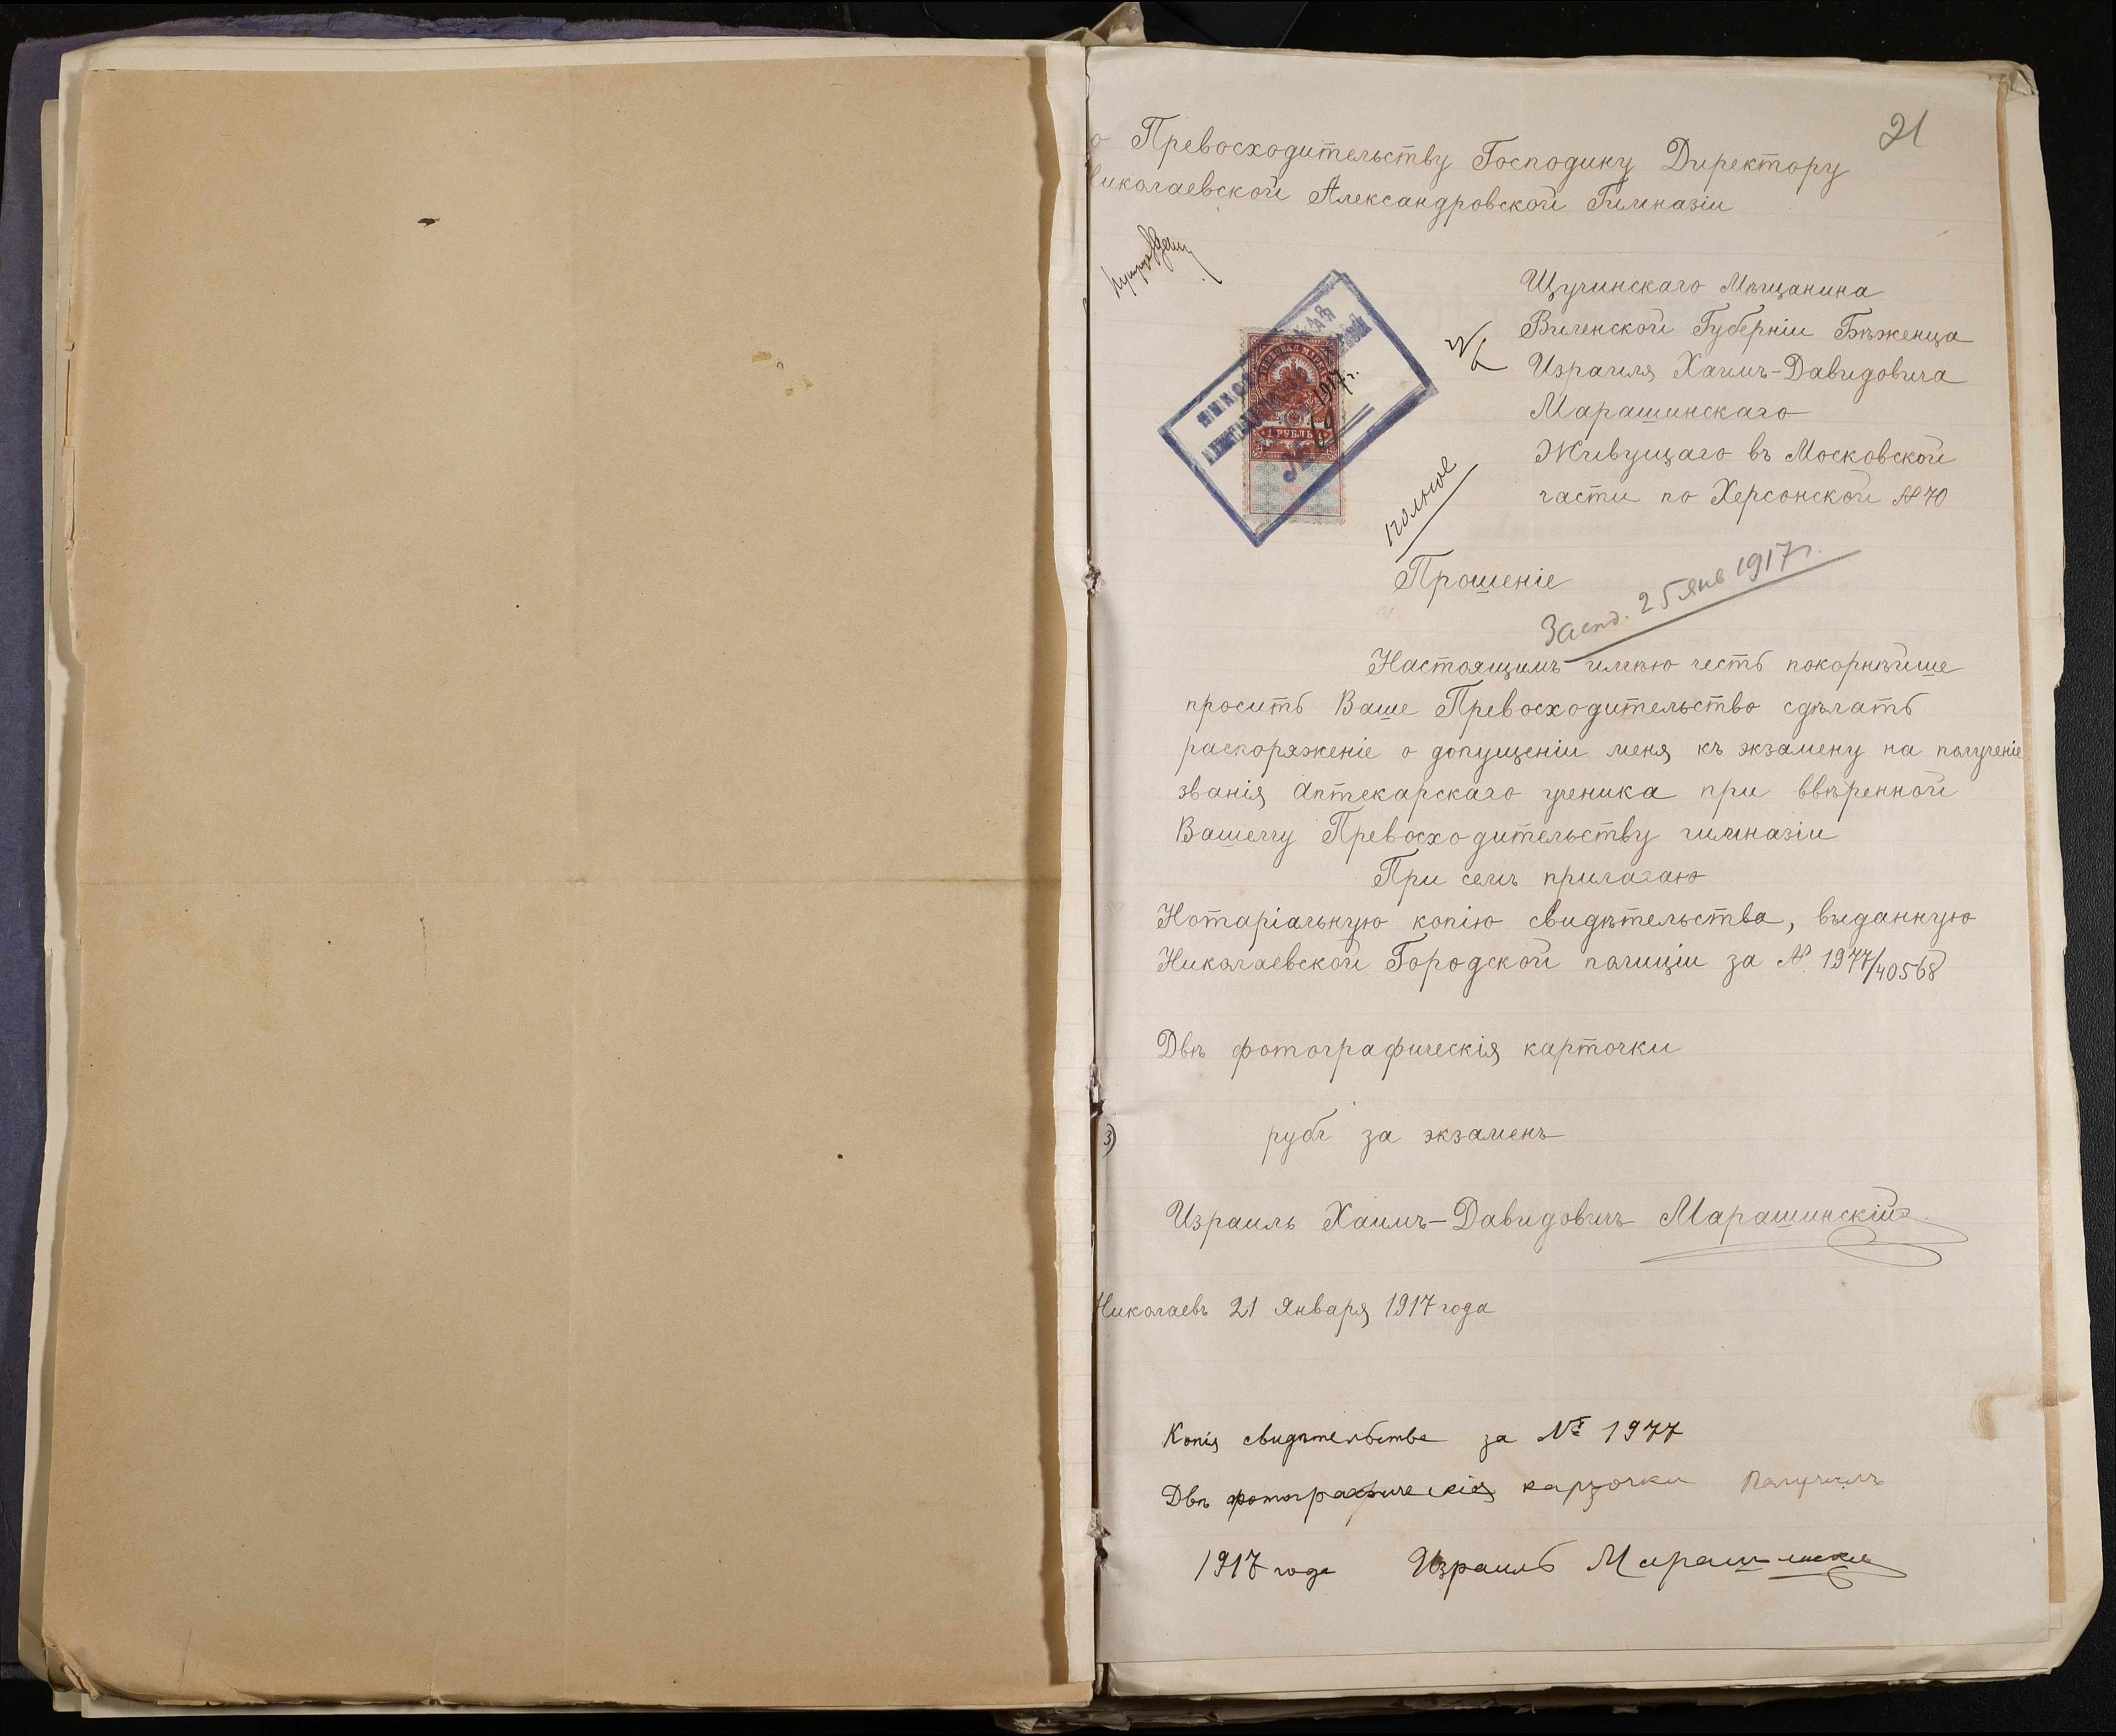 21
Превосходительству Господину Директору
иколаевской Александровской Гимназіи
Щучинскаго Мѣщанина
Виленской Губерніи Бѣженца
Израиля Хаимъ-Давидовича
Марашинскаго
Живущаго въ Московской
части по Херсонской № 70
1917 г.
1 РУБЛЬ
Прошеніе
25 янв 1917 г.
Настоящимъ имѣю честь покорнѣйше
просить Ваше Превосходительство сдѣлать
распоряженіе о допущеніи меня къ экзамену на полученіе
званія Аптекарскаго ученика при ввѣренной
Вашему Превосходительству гимназіи
При семъ прилагаю
Нотаріальную копію свидѣтельства, выданную
Николаевской Городской полиціи за № 1977/40568
Двѣ фотографическія карточки
3) рубл за экзаменъ
Израиль Хаимъ-Давидовичъ Марашинскій
Николаевъ 21 Января 1917 года
Копія свидѣтельства за № 1977
Двѣ фотографическія карточки Получилъ
1917 года Израиль Марашинскій